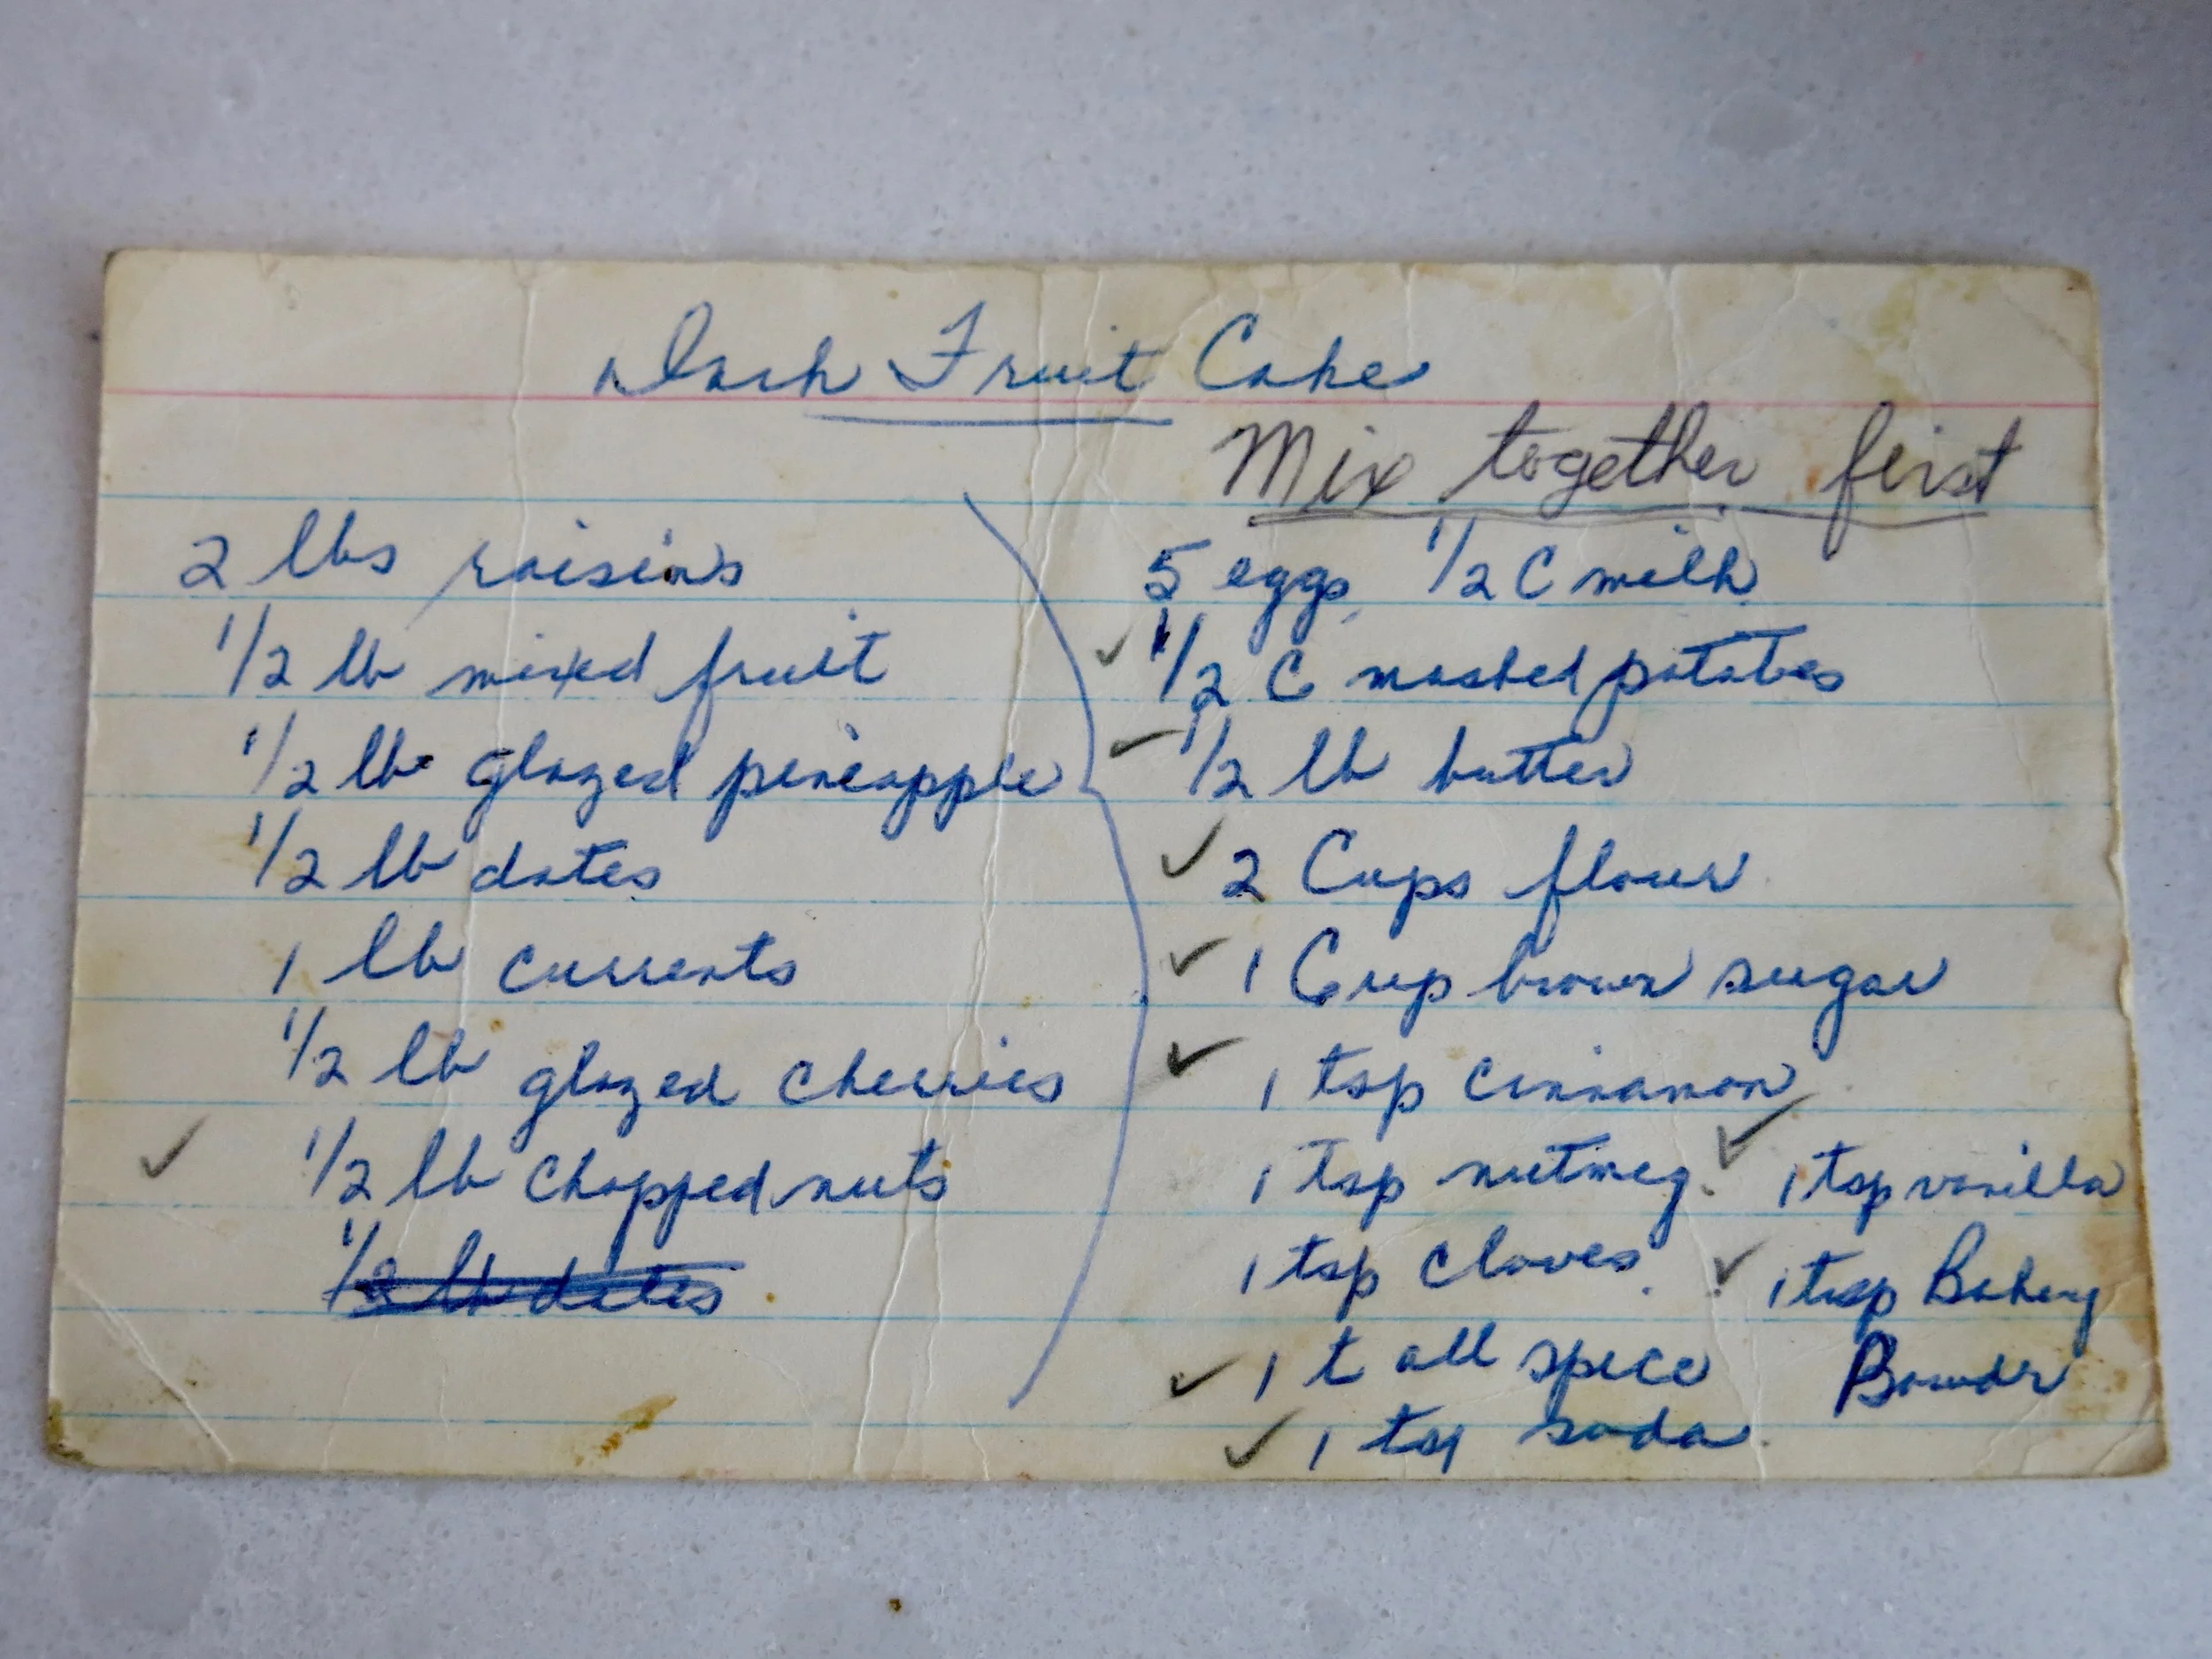 Dark Fruit Cake
Mix together first
2 lbs raisins
1/2 lb mixed fruit
1/2 lb glazed pineapple
1/2 lb dates
1 lb currents
1/2 lb glazed cherries
✓ 1/2 lb chopped nuts
1/2 lb dates
5 eggs, 1/2 C milk
✓ 1/2 C mashed potatoes
✓ 1/2 lb butter
✓ 2 Cups flour
✓ 1 Cup brown sugar
✓ 1 tsp cinnamon
1 tsp nutmeg. ✓ 1 tsp vanilla
1 tsp cloves. ✓ 1 tsp Baking
✓ 1 t all spice Powder
✓ 1 tsp soda.